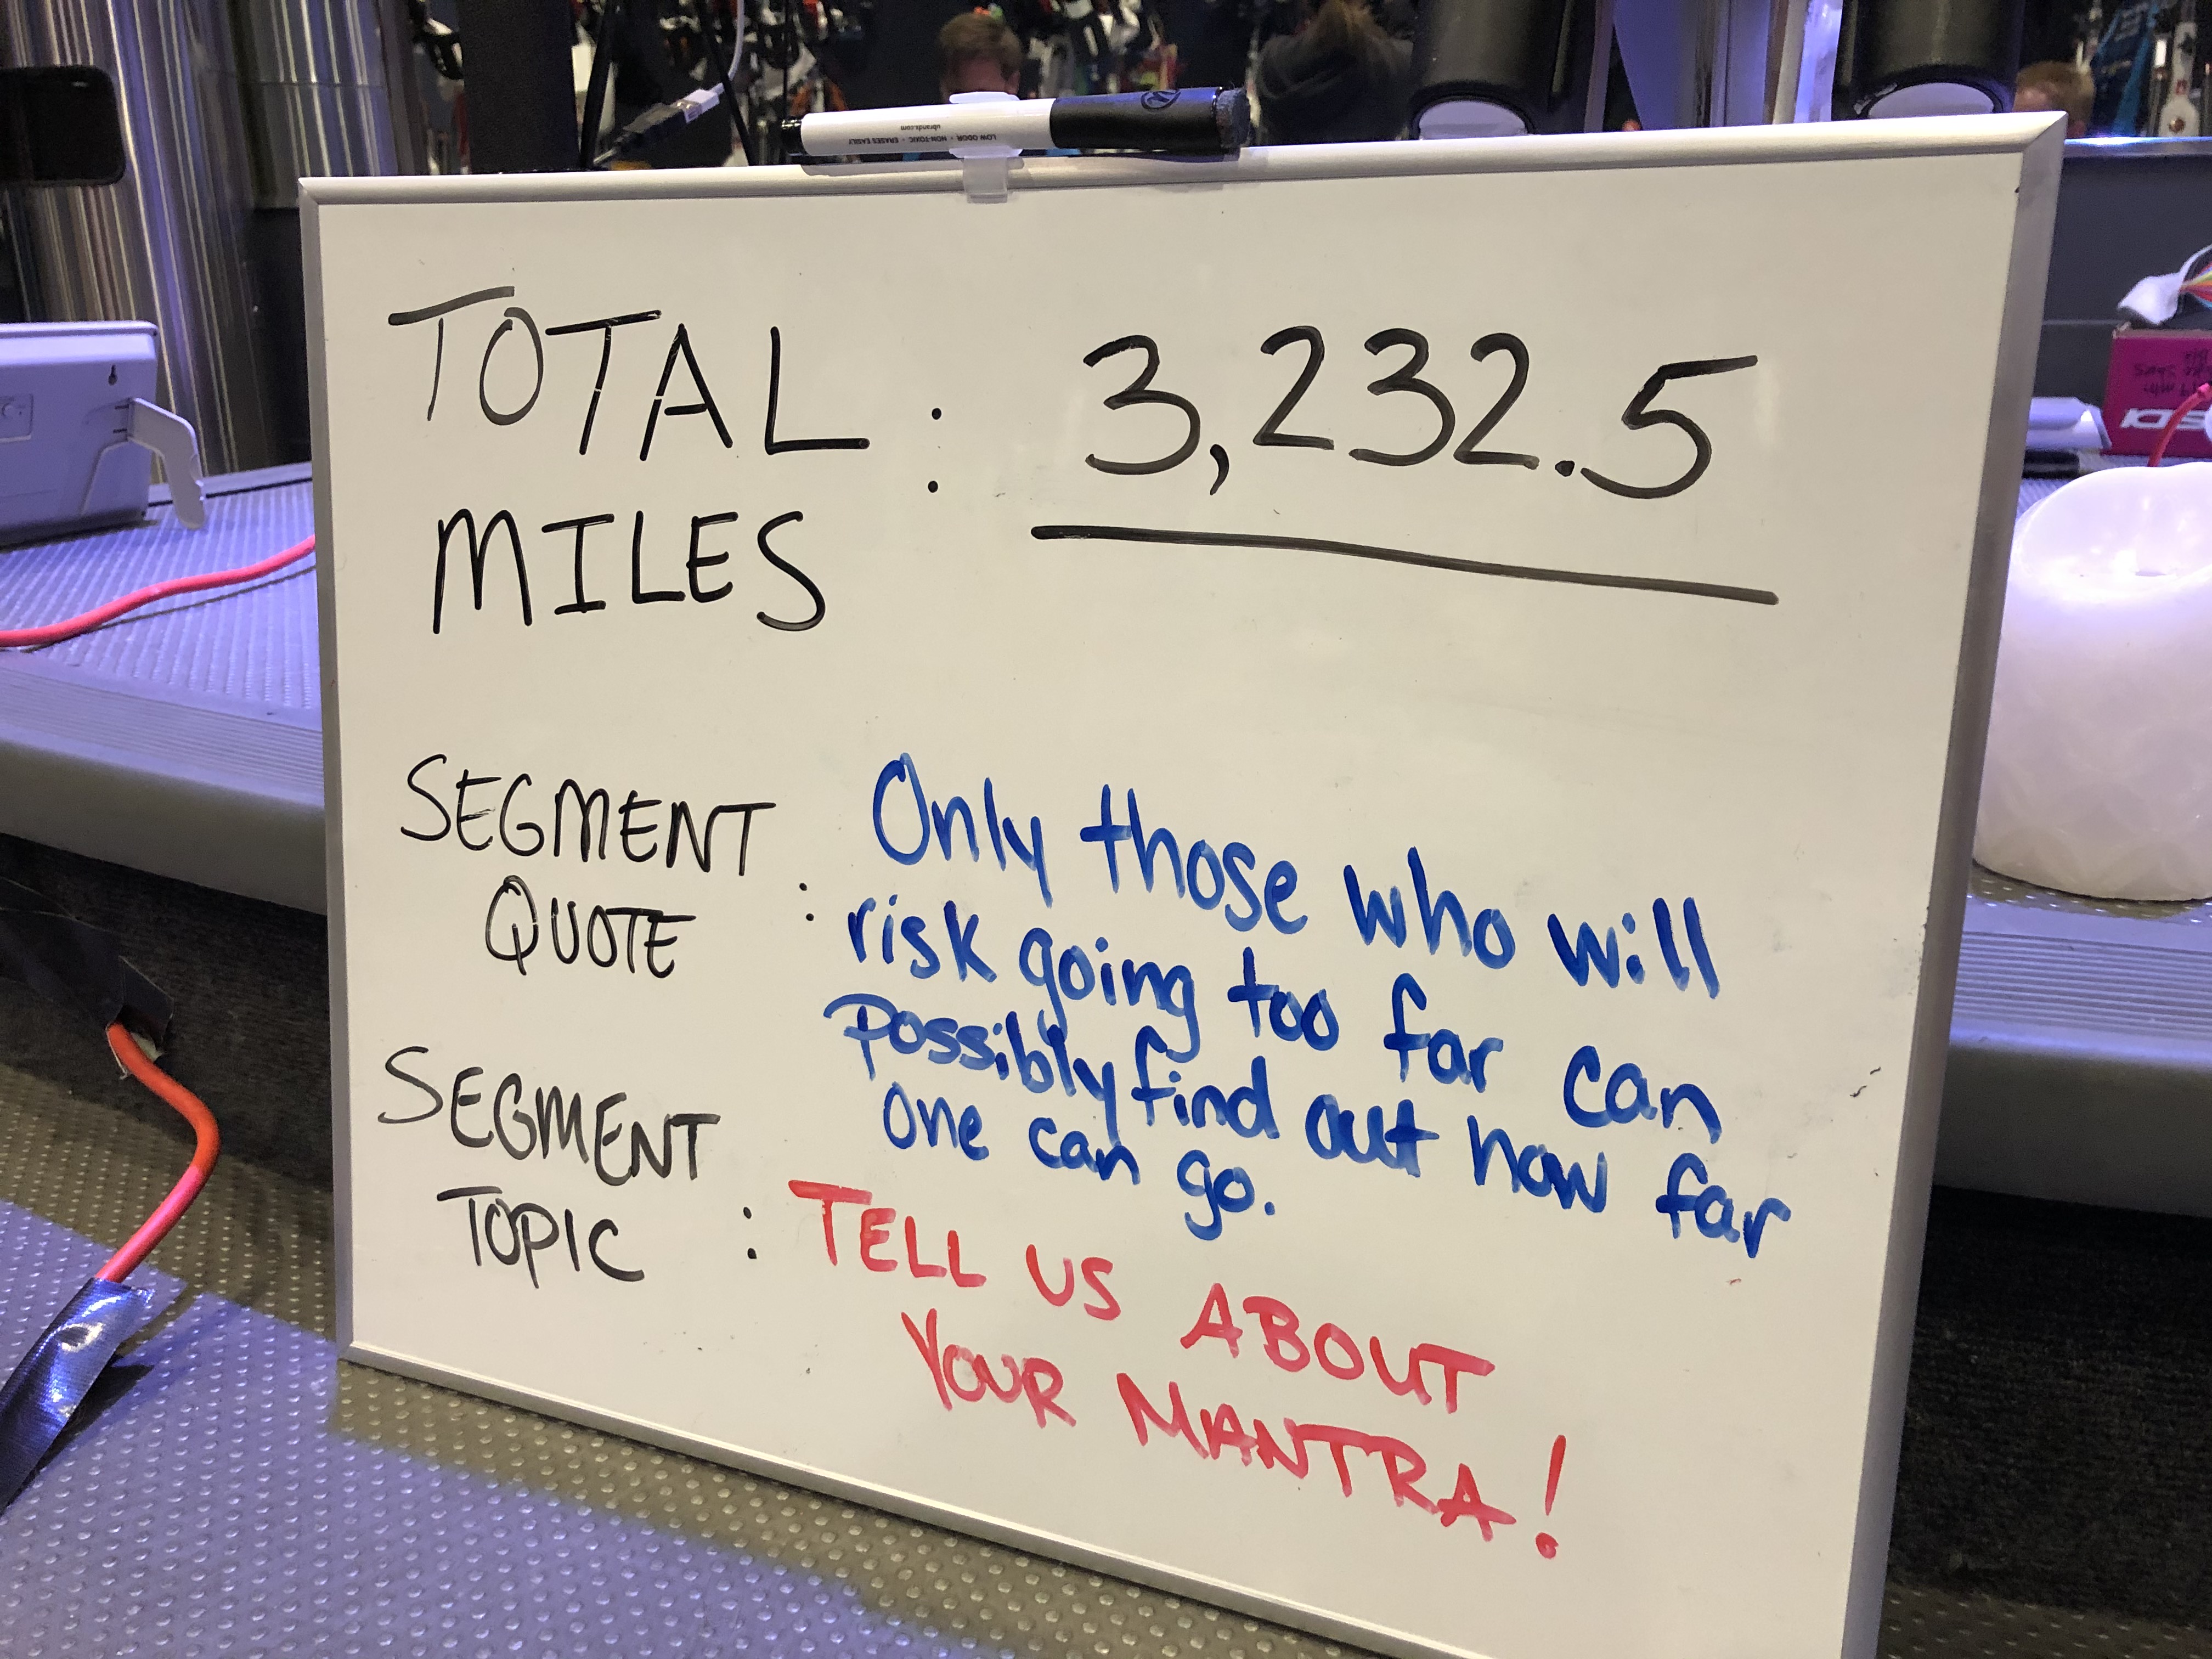 LOW ODOR · NON-TOXIC · ERASES EASILY
ubrands.com
TOTAL : 3,232.5
MILES
SEGMENT
QUOTE : Only those who will
risk going too far can
possibly find out how far
one can go.
SEGMENT
TOPIC : TELL US ABOUT
YOUR MANTRA!